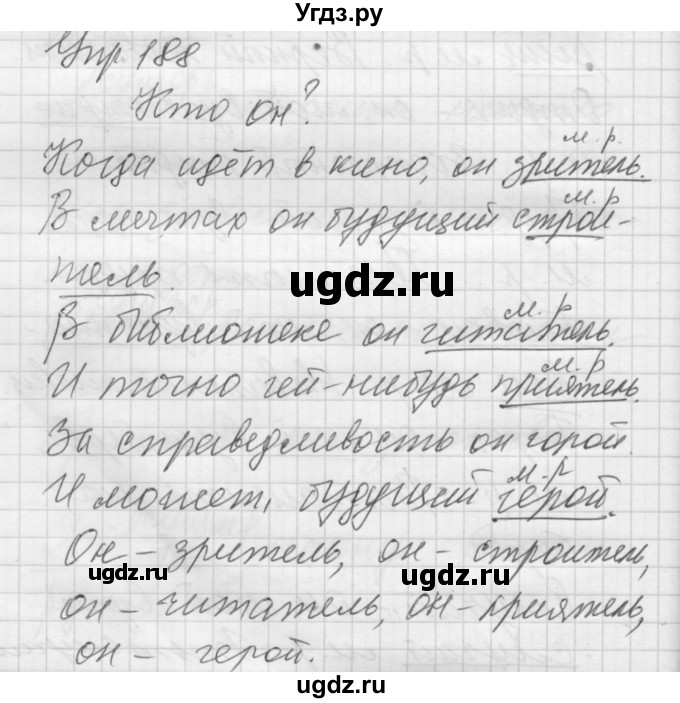 Угдз.ру
Упр 188
Кто он?
м. р.
Когда идёт в кино, он зритель.
м. р
В мечтах он будущий строи-
тель.
ugdz.ru
м. р
В библиотеке он читатель.
м. р
И точно чей-нибудь приятель.
За справедливость он горой.
м. р
И может, будущий герой.
Он – зритель, он – строитель,
ugdz.ru ugdz.ru
он – читатель, он – приятель,
он – герой.
ugdz.ru